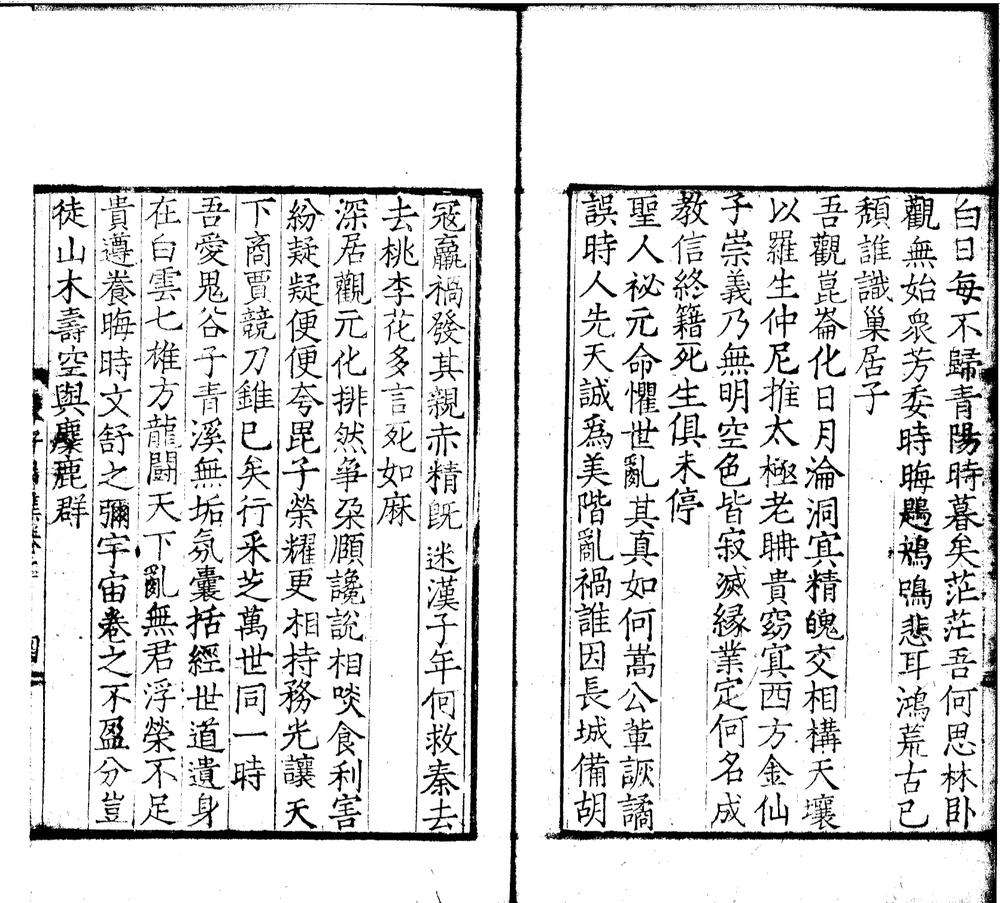 白日每不歸青陽時暮矣茫茫吾何思林卧
觀無始衆芳委時晦鶗鴂鳴悲耳鴻荒古已
頹誰識巢居子
吾觀崑崙化日月淪洞冥精魄交相構天壤
以羅生仲尼推太極老聃貴窈冥西方金仙
子崇義乃無明空色皆寂滅緣業定何名成
教信終籍死生俱未停
聖人祕元命懼世亂其真如何嵩公軰詼譎
誤時人先天誠爲美階亂禍誰因長城備胡
寇嬴禍發其親赤精旣迷漢子年何救秦去
去桃李花多言死如麻
深居觀元化排然爭朶頤讒說相啖食利害
紛疑疑便便夸毘子榮耀更相持務光讓天
下商賈競刀錐已矣行采芝萬世同一時
吾愛鬼谷子青溪無垢氛囊括經世道遺身
在白雲七雄方龍鬬天下亂無君浮榮不足
貴遵養晦時文舒之彌宇宙卷之不盈分豈
徒山木壽空與麋鹿群